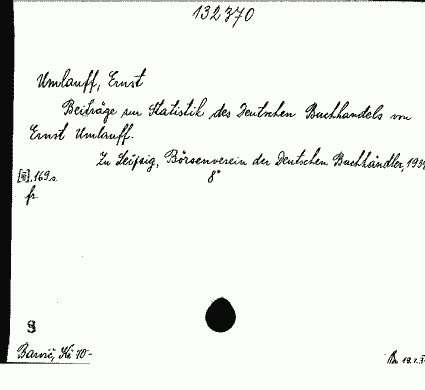 132370
Umlauff, Ernst
Beiträge zur Statistik des Deutschen Buchhandels von
Ernst Umlauff.
Zu Leipzig, Börsenverein der Deutschen Buchhändler, 193
8°
169 s.
fr.
S
Kč 70-